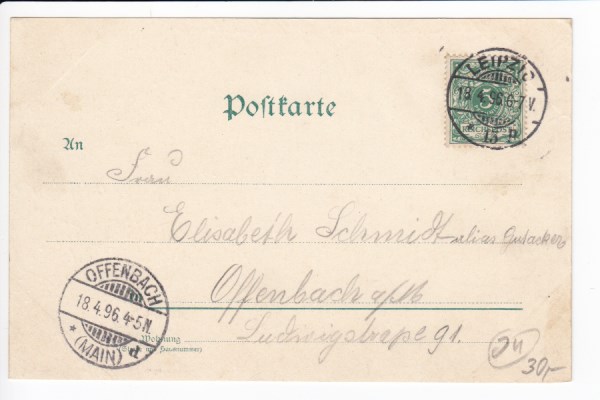 LEIPZIG
18.4.96.6-7V.
* 13 P.
5
REICHSPOST
Postkarte
An
Frau
Elisabeth Schmidt alias
Offenbach a/M
Ludwigstraße 91.
OFFENBACH
18.4.96.4-5N.
* (MAIN)
Wohnung
(Straße und Hausnummer)
30,-